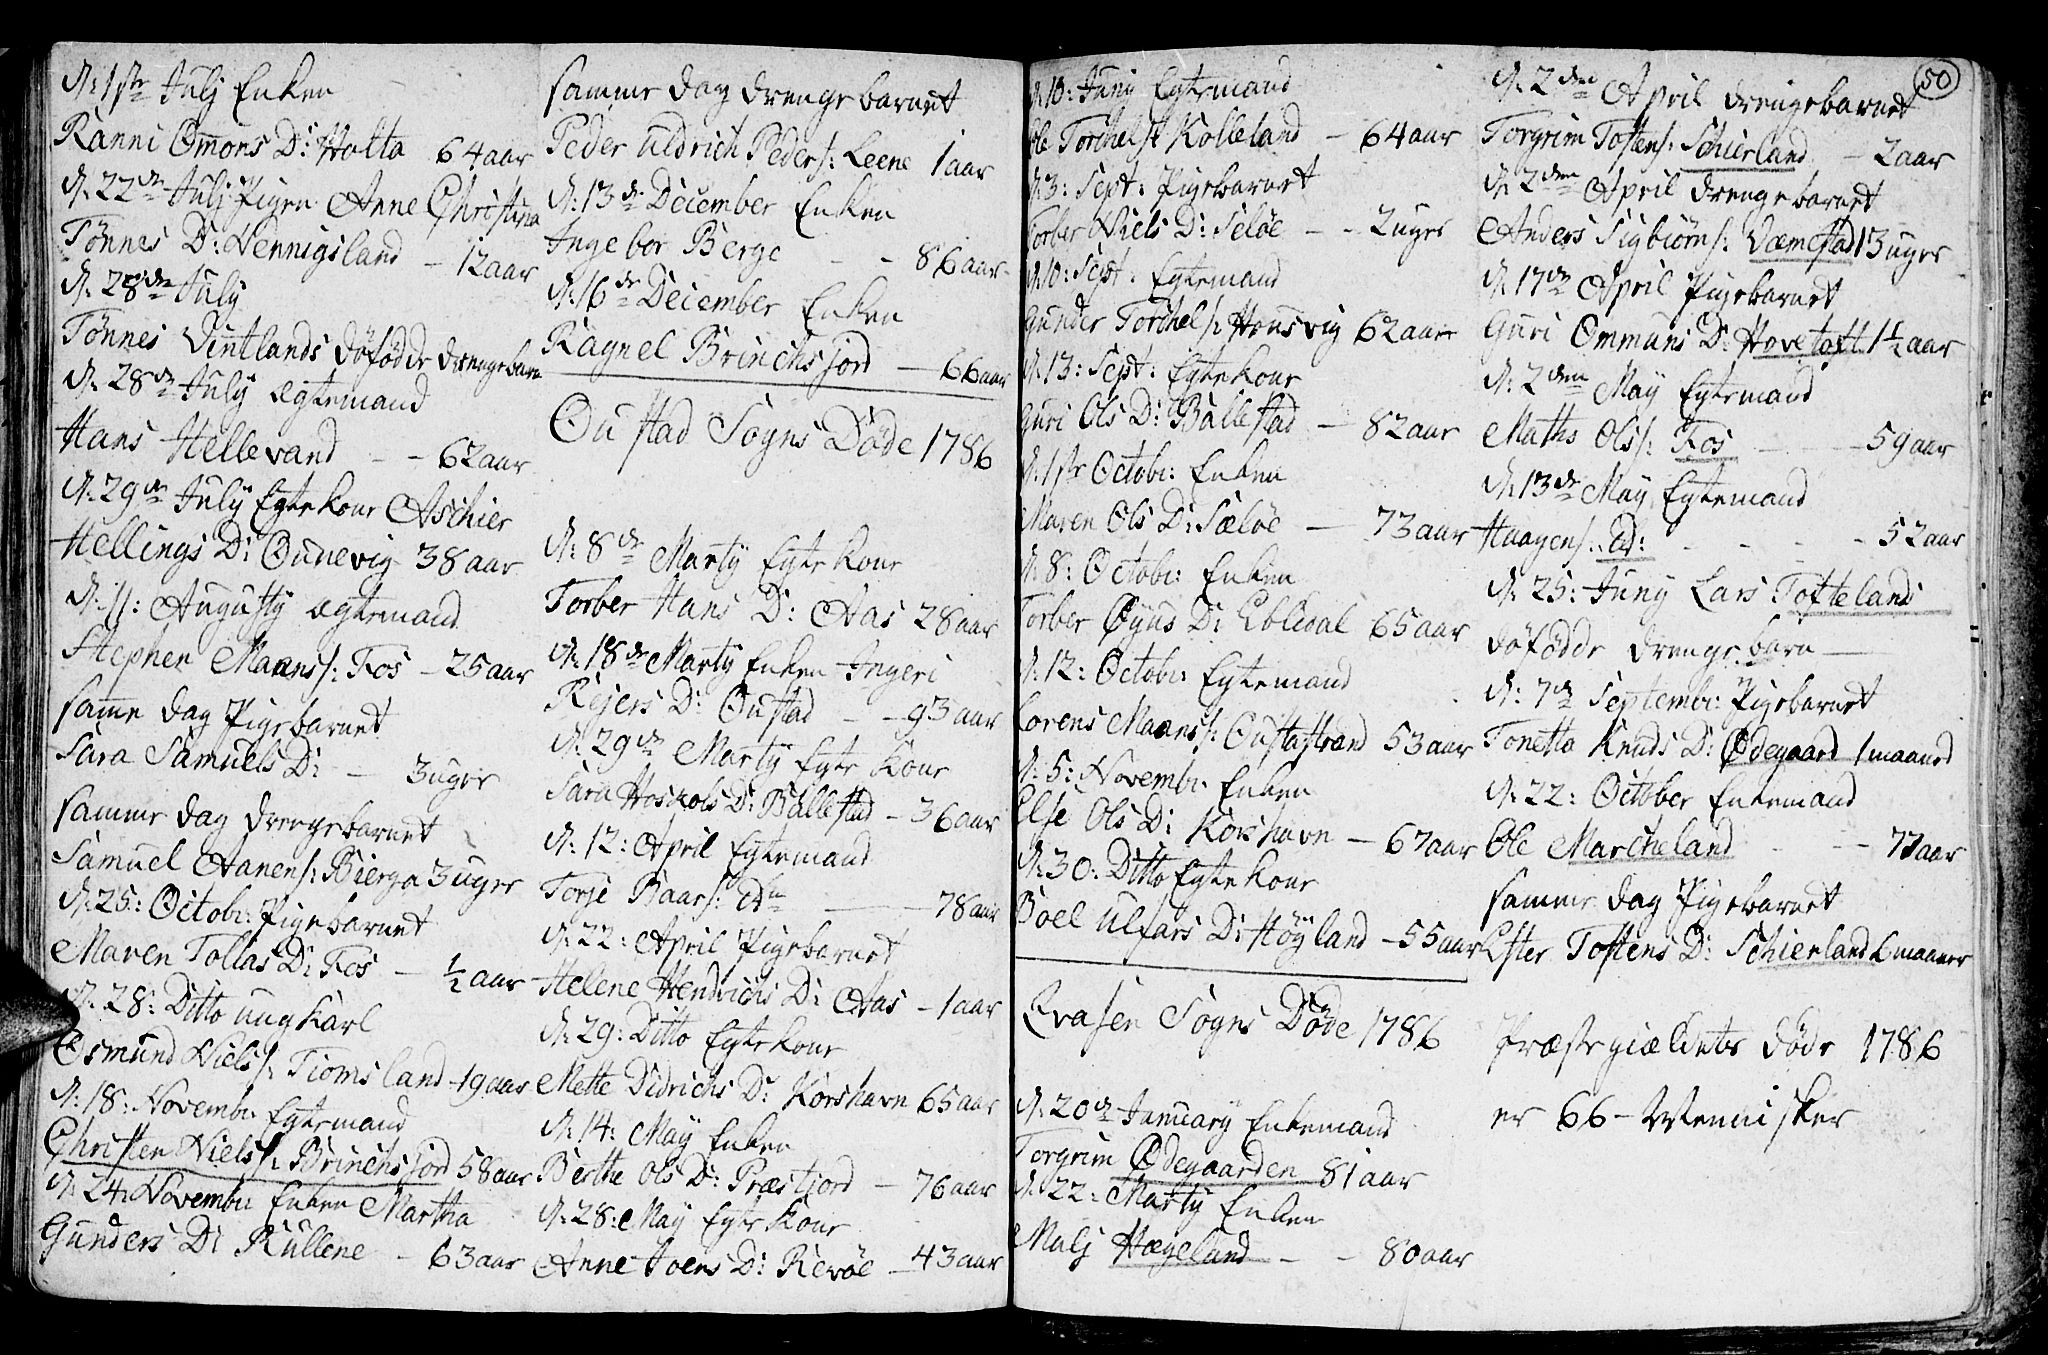 d: 1ste Julj Enken
Ranni Omons D: Hatta 64 aar
d: 22de Julj Pigen Anne Christina
Tönnes D: Vennigsland - 12 aar
d: 28de July
Tönnes Vintlands döfödde drengebarn
d: 28de July Ægtemand
Hans Hellevand - - 62 aar
d: 29de July Egtekone Aschier
Hellings D: Ounevig 38 aar
d: 11: Augusty Ægtemand
Stephen Maans S: Fos - 25 aar
samme dag Pigebarnet
Sara Samuels D: - 3 uger
samme dag drengebarnet
Samuel Aanens S: Bierga 3 uger
d: 25: Octobr: Pigebarnet
Maren Tollas D: Fos - ½ aar
d: 28: Ditto ung Karl
Osmund Niels S: Tiomsland - 19 aar
d: 18: Novembr: Egtemand
Christen Niels S: Brinchsjord 58 aar
d: 24: Novembr: Enken Martha
Gunders D: Kullene - 63 aar
samme dag drengebarnet
Peder Uldrich Peders: Leene 1 aar
d: 13de December Enken
Ingebor Berge - - 86 aar
d: 16de December Enken
Ragnel Brinchsjord - 66 aar
Oustad Sogns Döde 1786
d: 8de Marty Egtekone
Torber Hans D: Aas 28 aar
d: 18de Marty Enken Ingeri
Rejers D: Oustad - - 93 aar
d: 29de Marty Egte Kone
Sara Hoskols D: Ballestad - 36 aar
d: 12: April Egtemand
Torje Baars: - 78 aar
d: 22: April Pigebarnet
Helene Hendrichs D: Aas - 1 aar
d: 29: Ditto Egtekone
Mette Didrichs D: Korshavn 65 aar
d: 14: May Enken
Berthe Ols D: Præstjord - 76 aar
d: 28: May Egte Kone
Anne Joens D: Revöe - 43 aar
d: 10: Juny Egtemand
Ole Torchels S: Kolleland - 64 aar
d: 3: Sept: Pigebarnet
Torber Niels D: Selöe - - 2 uger
d: 10: Sept: Egtemand
Gunder Torchels: Housvig 62 aar
d: 13: Sept: Egtekone
Guri Ols D: Ballestad - 82 aar
d: 1ste Octobr: Enken
Maren Ols D: Sælöe - 73 aar
d: 8: Octobr: Enken
Torber Öÿus D: Ebledal 65 aar
d: 12: Octobr: Egtemand
Lorens Maans S: Oustastrand 53 aar
d: 5: Novembr: Enken
Else Ols D: Korshavn - 67 aar
d: 30: Ditto Egtekone
Boel Ulfars D: Höyland - 55 aar
Qvasen Sogns Döde 1786
d: 20de January Enkemand
Torgrim Ödegaarden 81 aar
d: 22: Marty Enken
Malj Hægeland - - 80 aar
50
d: 2den April drengebarnet
Torgrim Tostens: Schierland - 2 aar
d: 2den April drengebarnet
Anders Sigbiörns: Væmestad 13 uger
d: 17de April Pigebarnet
Guri Ommuns D: Hovetoft 1½ aar
d: 2den May Egtemand
Maths Ols S: Fos - - 59 aar
d: 13de May Egtemand
Haagens: Ed: - - - - 52 aar
d: 25: Juny Lars Tofteland
döfödde drengebarn -
d: 7de Septembr: Pigebarnet
Tonetta Knuds D: Ödegaard 1 maaned
d: 22: October Enkemand
Ole Marcheland - - 77 aar
samme dag Pigebarnet
Ester Tostens D: Schierland 6 maaner
Præstegiældets döde 1786
er 66 - Mennisker